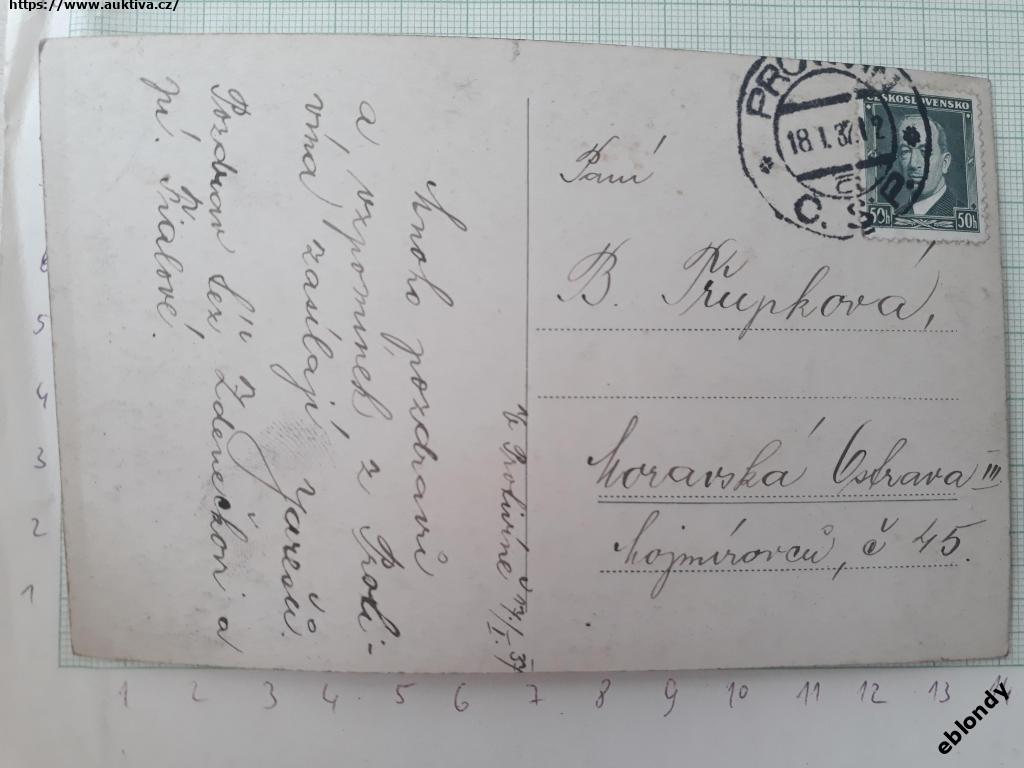 https://www.auktiva.cz/
Mnoho pozdravů
a vzpomínek z Proti-
vína, zasílají
Pozdrav též Zdenečkovi a
pí. Fialové.
V Protivíně 17./I. 37
PRO
18 I. 37. 12
Č.S.P.
ČESKOSLOVENSKO
50h 50h
Paní
B. Krupková,
Moravská Ostrava III
Mojmírovců, č 45.
6
5
4
3
2
1
1 2 3 4 5 6 7 8 9 10 11 12 13
eblondy